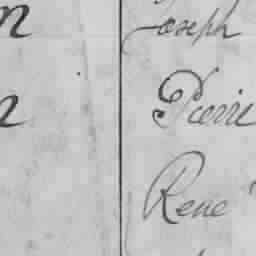 Joseph
Pierre
René